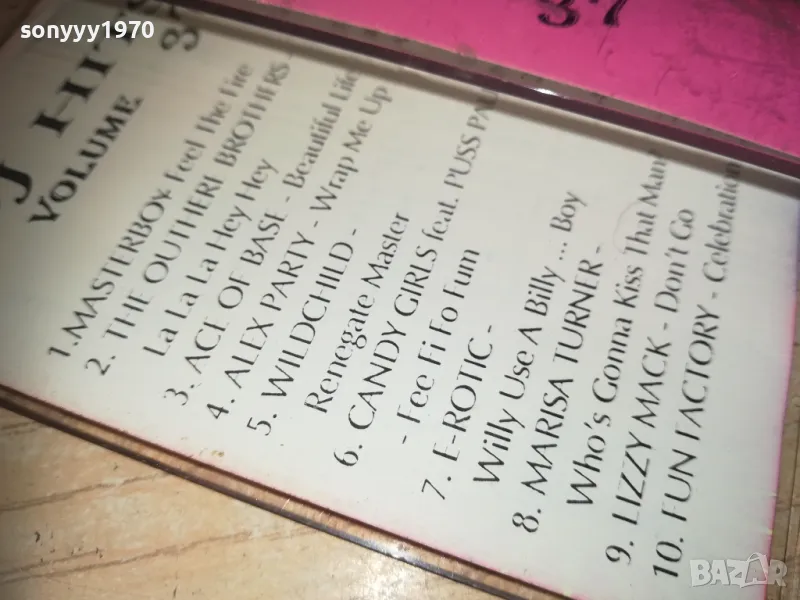 sonyyy1970
HITS
VOLUME
1.MASTERBOY- Feel The Fire
2. THE OUTHERE BROTHERS -
La La La Hey Hey
3. ACE OF BASE - Beautiful Life
4. ALEX PARTY - Wrap Me Up
5. WILDCHILD -
Renegate Master
6. CANDY GIRLS feat. PUSS
- Fee Fi Fo Fum
7. E-ROTIC -
Willy Use A Billy ... Boy
8. MARISA TURNER -
Who's Gonna Kiss That Man
9. LIZZY MACK - Don't Go
10. FUN FACTORY - Celebration
BAZAR